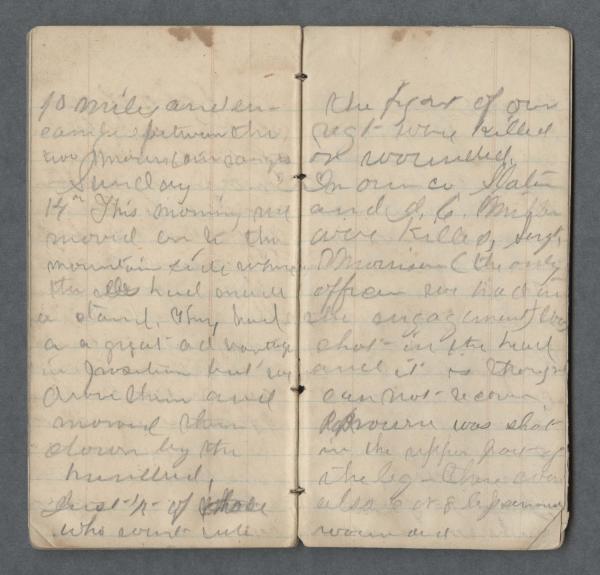 10 miles and en-
camp between the
two mountain ranges
Sunday
14th This morning we
moved on to the
mountain side where
the rebs had made
a stand. They had
a a great advantage
in position but we
drove them and
mowed them
down by the
hundred,
Just ½ of those
who went into
the fight of our
regt were killed
or wounded.
In our co Slater
and
were killed, Sergt
Morrison (the only
officer we had in
the engagement) was
shot in the head
and it is thought
can not recover
Browne was shot
in the upper part of
the leg There were
also
wounded